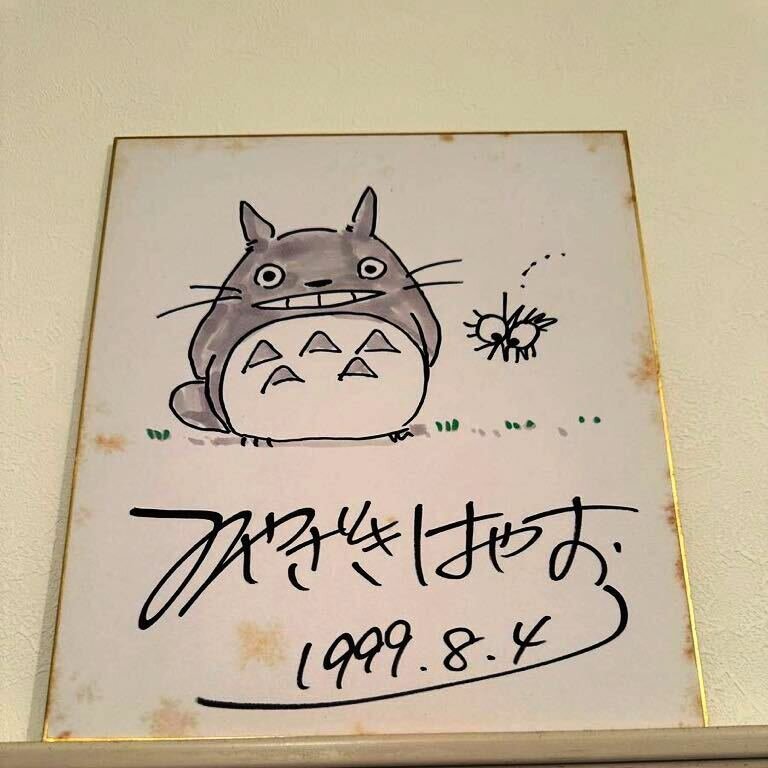 みやざきはやお
1999.8.4